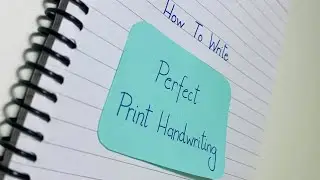 How To Write
Perfect
Print Handwriting